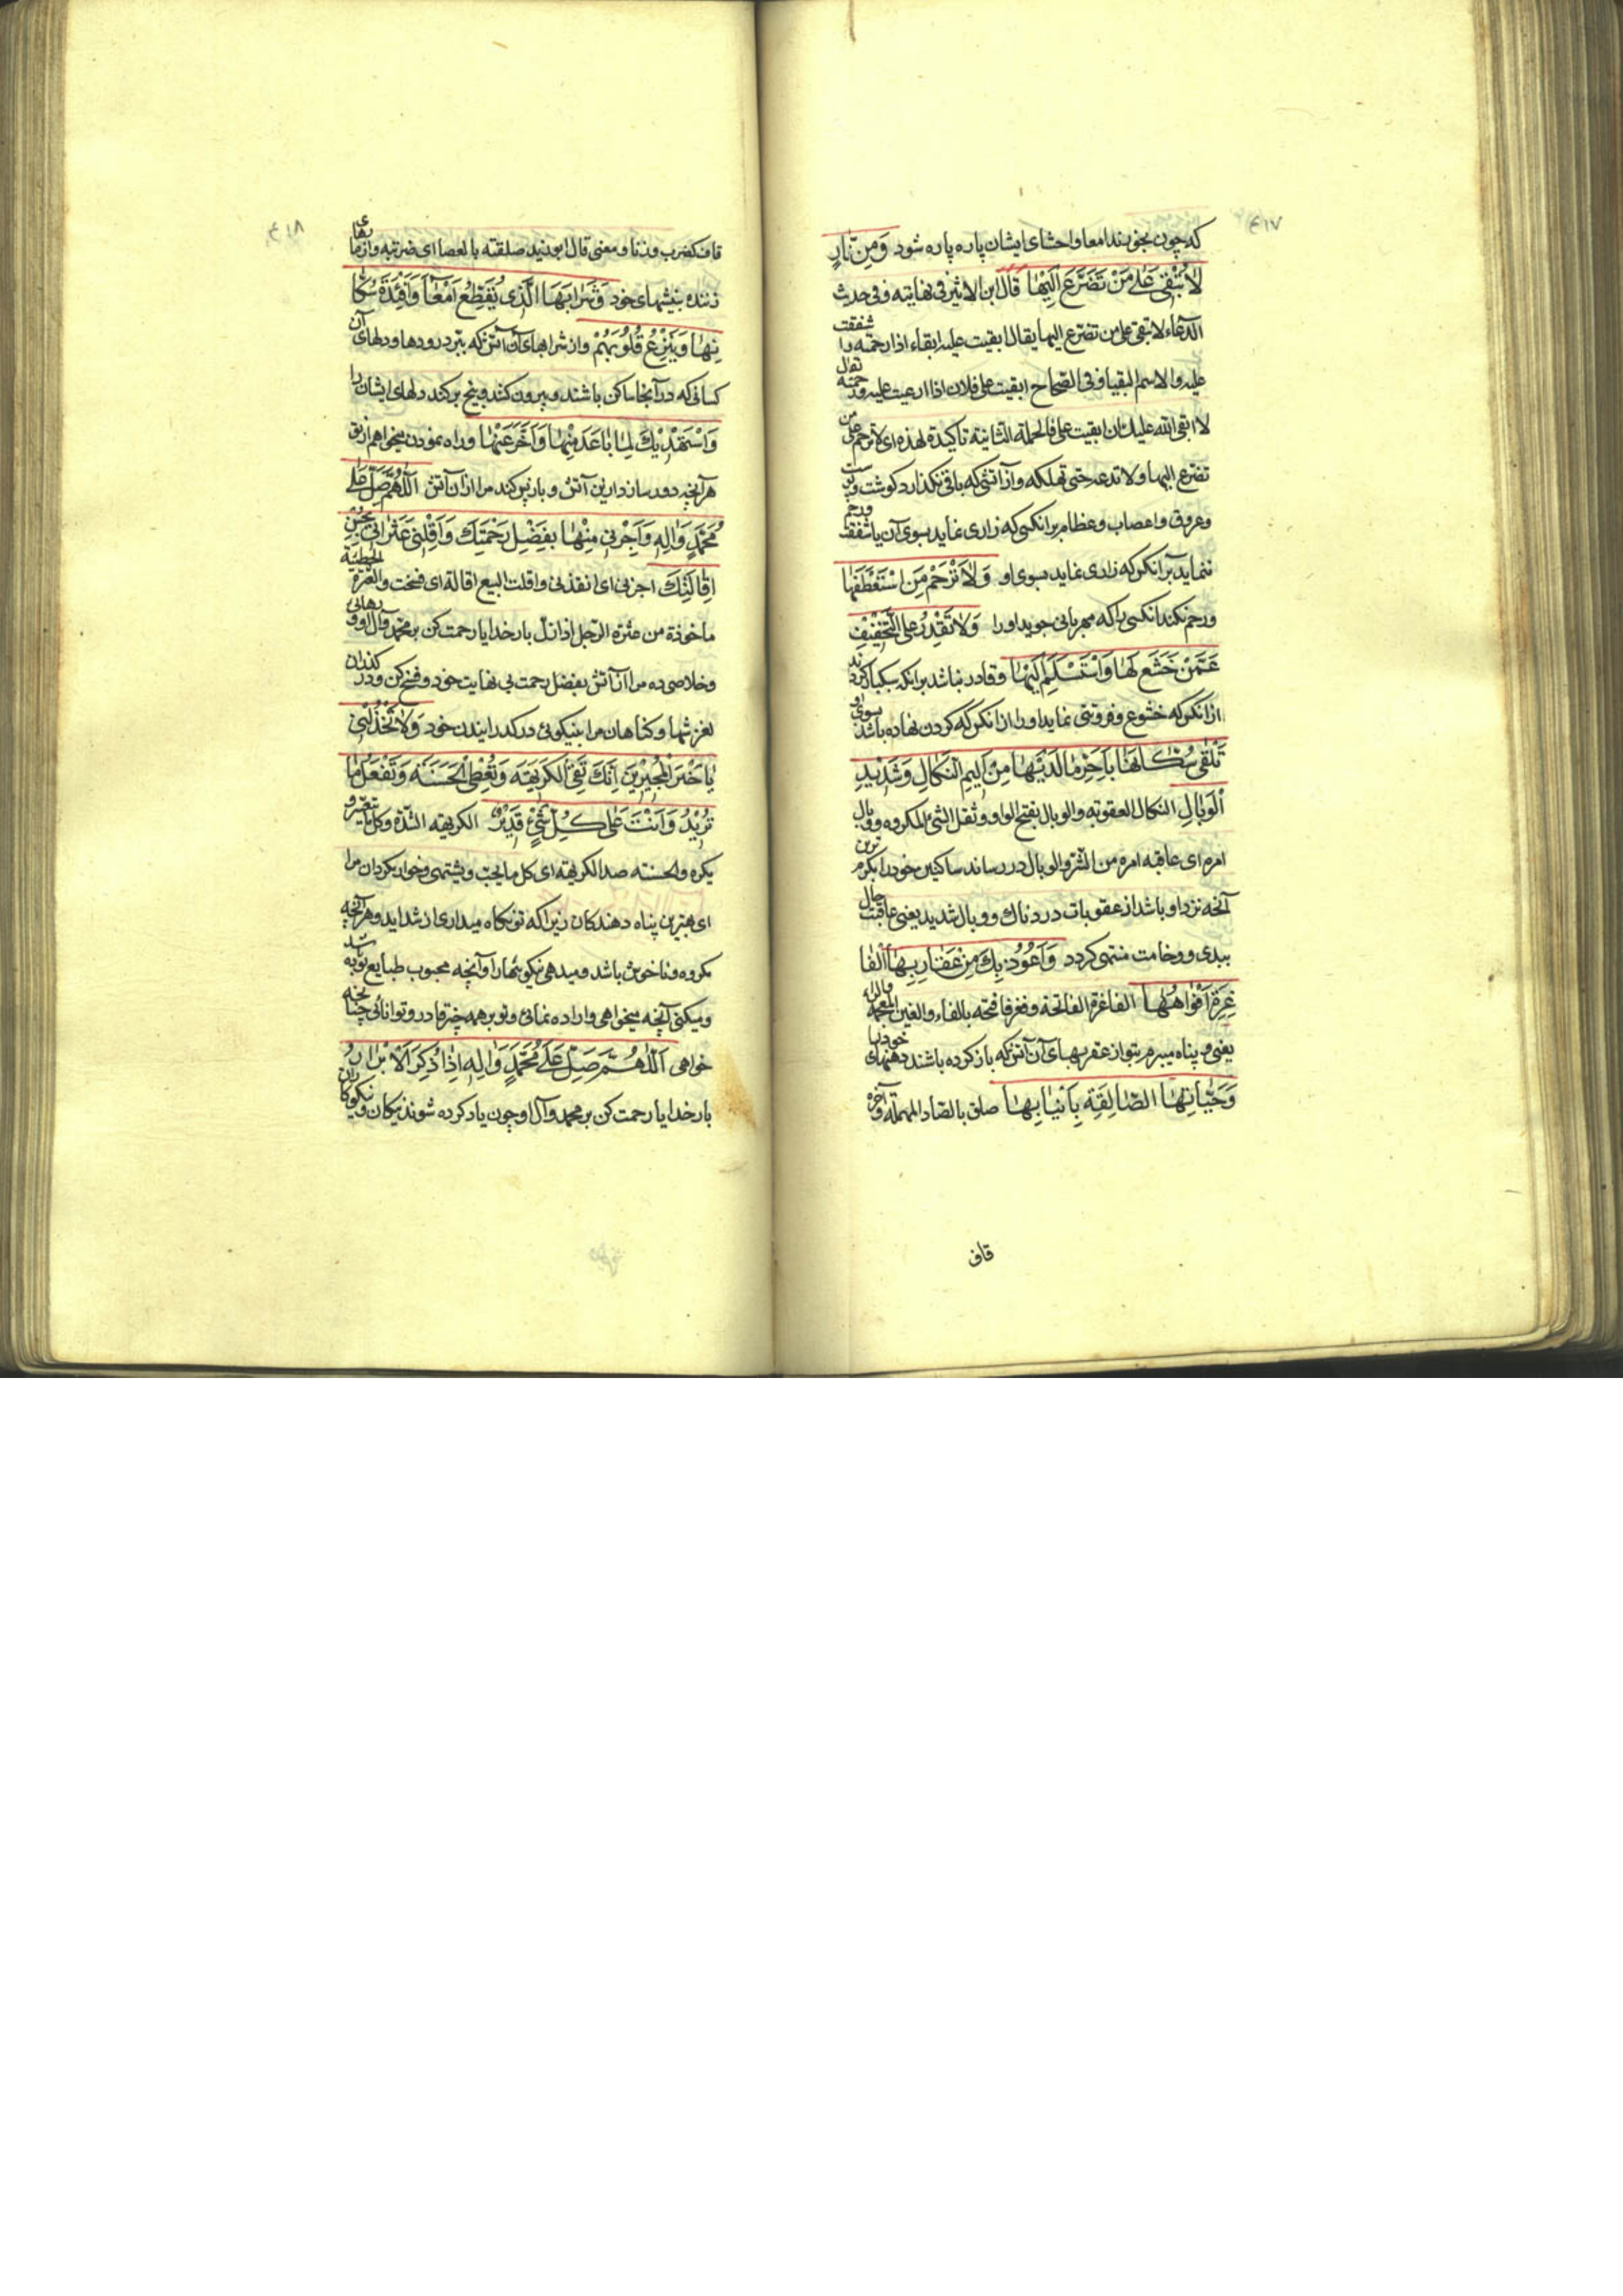 ۴۱۷
که چون بخورند امعا و احشای ایشان پاره پاره شود وَمِنْ نَارٍ
لَا تُبْقِي عَلَى مَنْ تَضَرَّعَ إِلَيْهَا قال ابن الاثیر فی نهایته و فی حدیث
الدعاء لا تبقی علی من تضرع الیها یقال ابقیت علیه ابقاء اذا رحمته و شفقت
علیه والاسم البقیا و فی الصحاح ابقیت علی فلان اذا ارعیت علیه و رحمته یقال
لا ابقی الله علیک ان ابقیت علی فالجملة الثانیة تاکیدة لهذه ای لا ترحم علی من
تضرع الیها و لا تدعه حتی تهلکه و از آتشی که باقی نگذارد گوشت و پوست
و عروق و اعصاب و عظام بر آنکسی که زاری نماید بسوی آن یا شفقت و رحم
ننماید بر آنکس که زاری نماید بسوی او وَلَا تَرْحَمُ مَنِ اسْتَعْطَفَهَا
و رحم نکند آنکسی را که مهربانی جوید او را وَلَا تَقْدِرُ عَلَى التَّخْفِيفِ
عَمَّنْ خَشَعَ لَهَا وَاسْتَسْلَمَ إِلَيْهَا و قادر نباشد بر آنکه سبکبار گرداند
از آنکس که خشوع و فروتنی نماید او را از آنکس که گردن نهاده باشد بسوی او
تَلْقَى سُكَّانَهَا بِأَحَرِّ مَا لَدَيْهَا مِنْ أَلِيمِ النَّكَالِ وَشَدِيدِ
الْوَبَالِ النکال العقوبه والوبال بفتح الواو و ثقل الشئ المکروه و وبال
امره ای عاقبه امره من الشر والوبال در رساند ساکنین خود را بگرم ترین
آنچه نزد او باشد از عقوبات دردناک و وبال شدید یعنی عاقبت حال
ببدی و وخامت منتهی گردد وَأَعُوذُ بِكَ مِنْ عَقَارِبِهَا الْفَا
غِرَةِ أَفْوَاهُهَا الفاغرة الفاتحة و فغر فا فتحه بالفاء والغین المعجمه والراء
یعنی و پناه میبرم بتو از عقربهای آن آتش که باز کرده باشند دهنهای خود را
وَحَيَّاتِهَا الصَّالِقَةِ بِأَنْيَابِهَا صلق بالصاد المهمله و آخره
قاف
۴۱۸
قاف کضرب وزنا و معنی قال ابو زید صلقته بالعصا ای ضربته و از مارهای
زننده بنیشهای خود وَشَرَابِهَا الَّذِي يُقَطِّعُ أَمْعَاءَ وَأَفْئِدَةَ سُكَّا
نِهَا وَيَنْزِعُ قُلُوبَهُمْ و از شرابهای آن آتش که ببرد رودها و دلهای آن
کسانی که در آنجا ساکن باشند و بیرون کنند و بیخ برکند دلهای ایشان را
وَأَسْتَهْدِيكَ لِمَا بَاعَدَ مِنْهَا وَأَخَّرَ عَنْهَا و راه نمودن میخواهم از تو
هر آنچه دور سازد ازین آتش و باز پس کند مرا از آن آتش اللَّهُمَّ صَلِّ عَلَى
مُحَمَّدٍ وَآلِهِ وَأَجِرْنِي مِنْهَا بِفَضْلِ رَحْمَتِكَ وَأَقِلْنِي عَثَرَاتِي بِحُسْنِ
إِقَالَتِكَ اجرنی ای انقذنی و اقلت البیع اقالة ای فسخت والعثرة الخطیئة
ماخوذة من عثرة الرجل اذا زل بار خدایا رحمت کن بر محمد و آل او و رهائی
و خلاصی ده مرا از آن آتش بفضل رحمت بی نهایت خود و فسخ کن و در گذران
لغزشها و گناهان مرا بنیکوئی در گذرانیدن خود وَلَا تَخْذُلْنِي
يَا خَيْرَ الْمُجِيرِينَ إِنَّكَ تَقِي الْكَرِيهَةَ وَتُعْطِي الْحَسَنَةَ وَتَفْعَلُ مَا
تُرِيدُ وَأَنْتَ عَلَى كُلِّ شَيْءٍ قَدِيرٌ الکریهه الشدّة و کل ما یضر و
یکره والحسنه ضد الکریهه ای کل ما یحب و یشتهی و خوار مگردان مرا
ای بهترین پناه دهندگان زیرا که تو نگاه میداری از شداید و هر آنچه
مکروه و ناخوش باشد و میدهی نیکوئیها را و آنچه محبوب طبایع باشد تو به
و میکنی آنچه میخواهی و اراده نمائی و تو بر همه چیز قادر و توانائی چنانچه
خواهی اللَّهُمَّ صَلِّ عَلَى مُحَمَّدٍ وَآلِهِ إِذَا ذُكِرَ الْأَبْرَارُ
بار خدایا رحمت کن بر محمد و آل او چون یاد کرده شوند نیکان و نیکوکاران